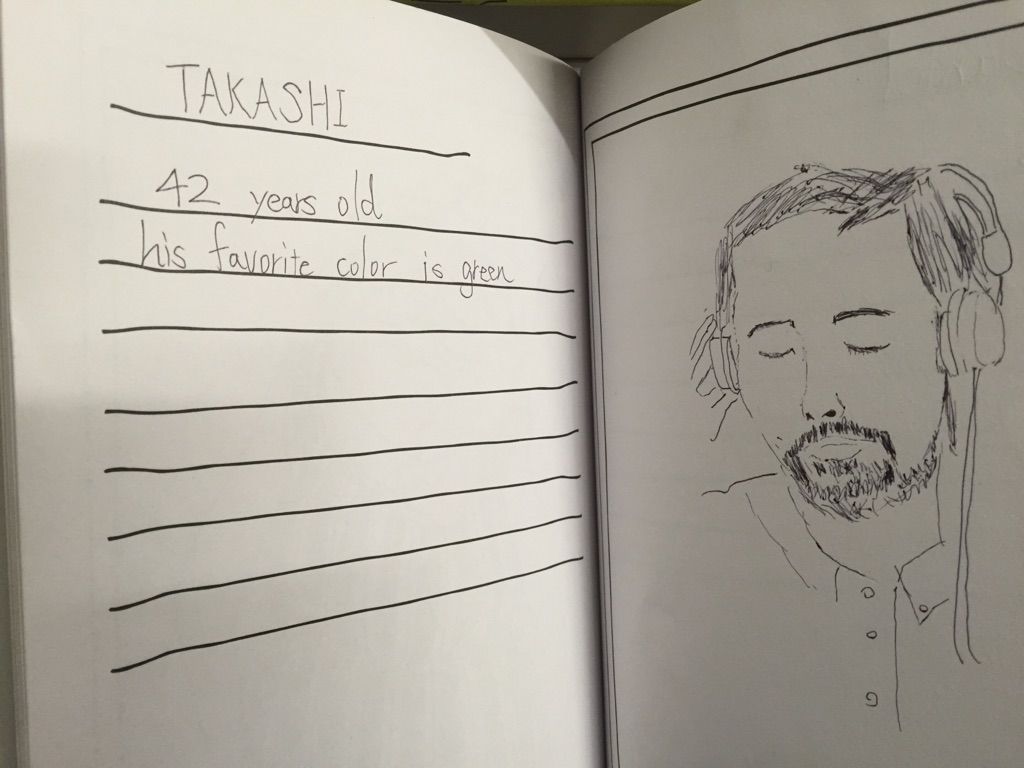 TAKASHI
42 years old
his favorite color is green